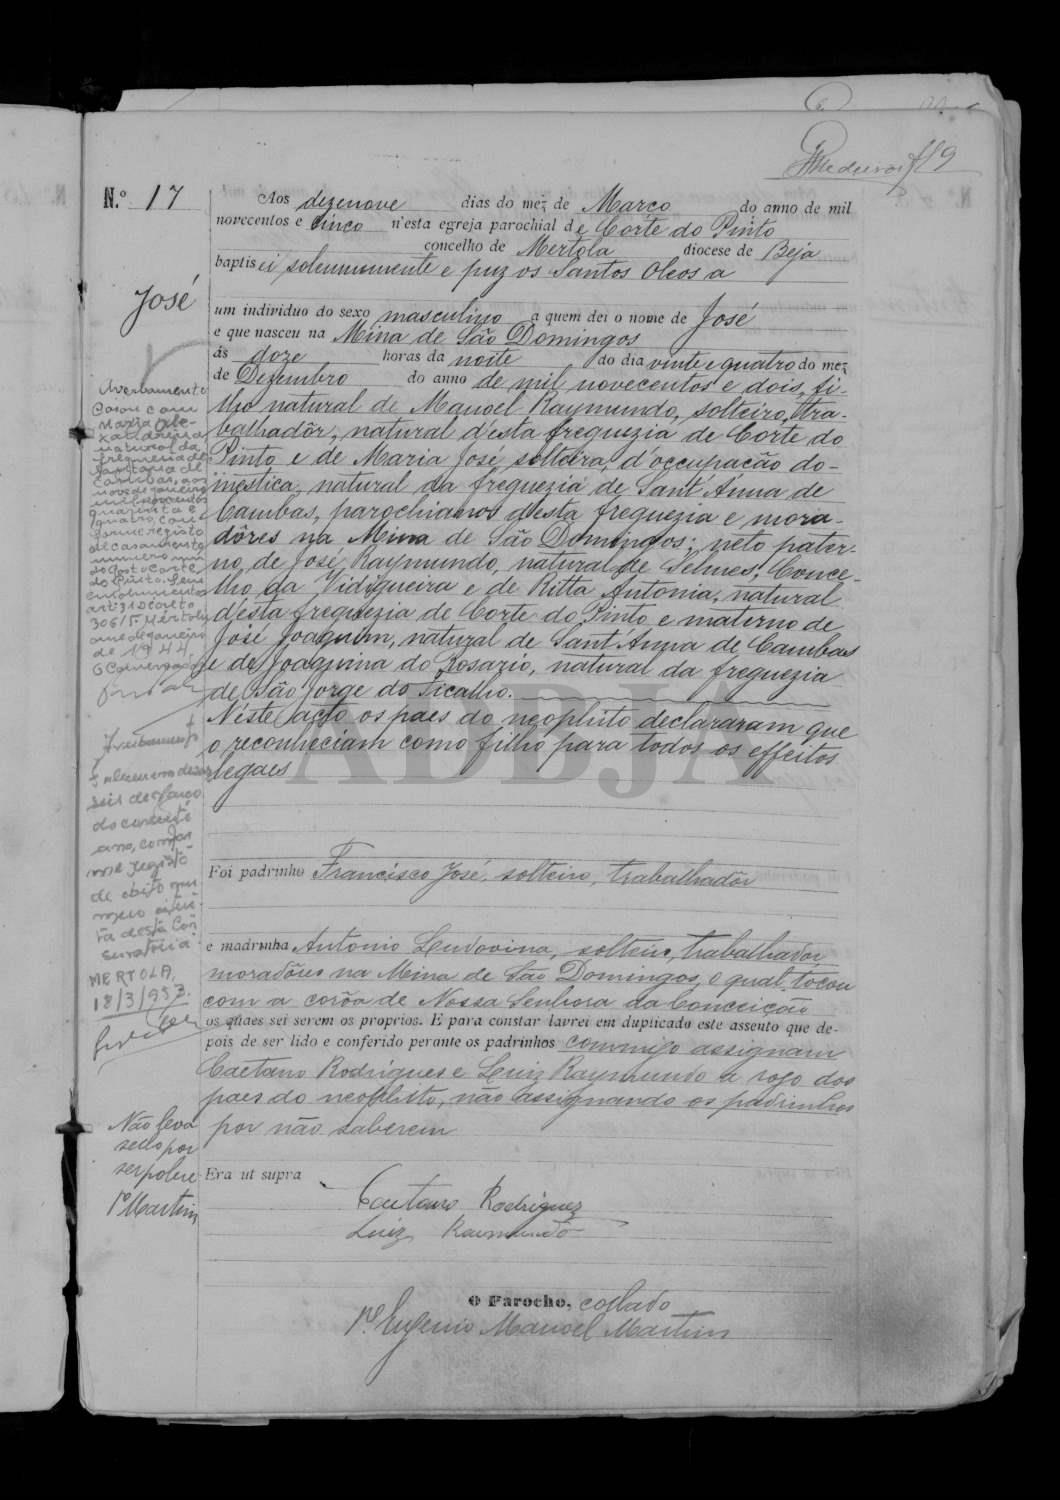 fl 9
N.º 17
José
Aos dezenove dias do mez de Março do anno de mil
novecentos e cinco n'esta egreja parochial de Corte do Pinto
concelho de Mertola diocese de Beja
baptisei solemnemente e puz os Santos Oleos a
um individuo do sexo masculino a quem dei o nome de José
e que nasceu na Mina de São Domingos
ás doze horas da noite do dia vinte e quatro do mez
de Dezembro do anno de mil novecentos e dois, fi-
lho natural de Manoel Raymundo, solteiro, tra-
balhadôr, natural d'esta freguezia de Corte do
Pinto e de Maria José, solteira, d'occupacão do-
mestica, natural da freguezia de Sant'Anna de
Cambas, parochianos d'esta freguezia e mora-
dôres na Mina de São Domingos; neto pater-
no de José Raymundo, natural de Selmes, Conce-
lho da Vidigueira e de Ritta Antonia, natural
d'esta freguezia de Corte do Pinto e materno de
José Joaquim, natural de Sant'Anna de Cambas
e de Joaquina do Rosario, natural da freguezia
de São Jorge do Ficalho.
N'este acto os paes do neophito declararam que
o reconheciam como filho para todos os effeitos
legaes
ADBJA
Foi padrinho Francisco José, solteiro, trabalhadôr
e madrinha Antonio Ludovina, solteiro, trabalhador,
moradôres na Mina de São Domingos, o qual tocou
com a corôa de Nossa Senhora da Conceição
os quaes sei serem os proprios. E para constar lavrei em duplicado este assento que de-
pois de ser lido e conferido perante os padrinhos commigo assignam
Caetano Rodrigues e Luiz Raymundo a rogo dos
paes do neophito, não assignando os padrinhos
por não saberem
Era ut supra
Caetano Rodriguez
Luiz Raimundo
O Parocho, collado
P.e Eugenio Manoel Martins
Averbamento
Casou com
Maria Ale-
xandrina
natural da
freguesia de
Santana de
Cambas, aos
nove de janeiro
mil novecentos
quarenta e
quatro, con-
forme registo
de casamento
numero um
do Posto Corte
do Pinto. Sem
emolumentos
art. 31 Decreto
30615. Mértola
onze de janeiro
de 1944.
O Conservador
Averbamento
Faleceu em dezas-
seis de Março
do corrente
ano, confor-
me registo
de obito nu-
mero
ta desta Con-
servatória.
MERTOLA,
18/3/953.
Não leva
sello por
ser pobre
P.e Martins